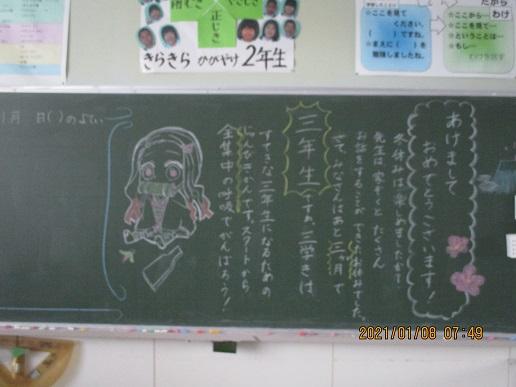 正じき
きらきら かがやけ 2年生
☆ここを見て
ください。
( )ですね。
☆まえに( )を
勉強しましたね。
わけ
☆ここから…
☆ここを見て
☆ということは…
☆もし…
あけまして
おめでとうございます!
冬休みは楽しめましたか?
先生は家ぞくとたくさん
お話をすることができたお休みでした。
さて、みなさんはあと三か月で
三年生ですね。三学きは、
すてきな三年生になるための
じゅんびきかんです。スタートから
全集中の呼吸でがんばろう!
1月 日( )のよてい
2021/01/08 07:49